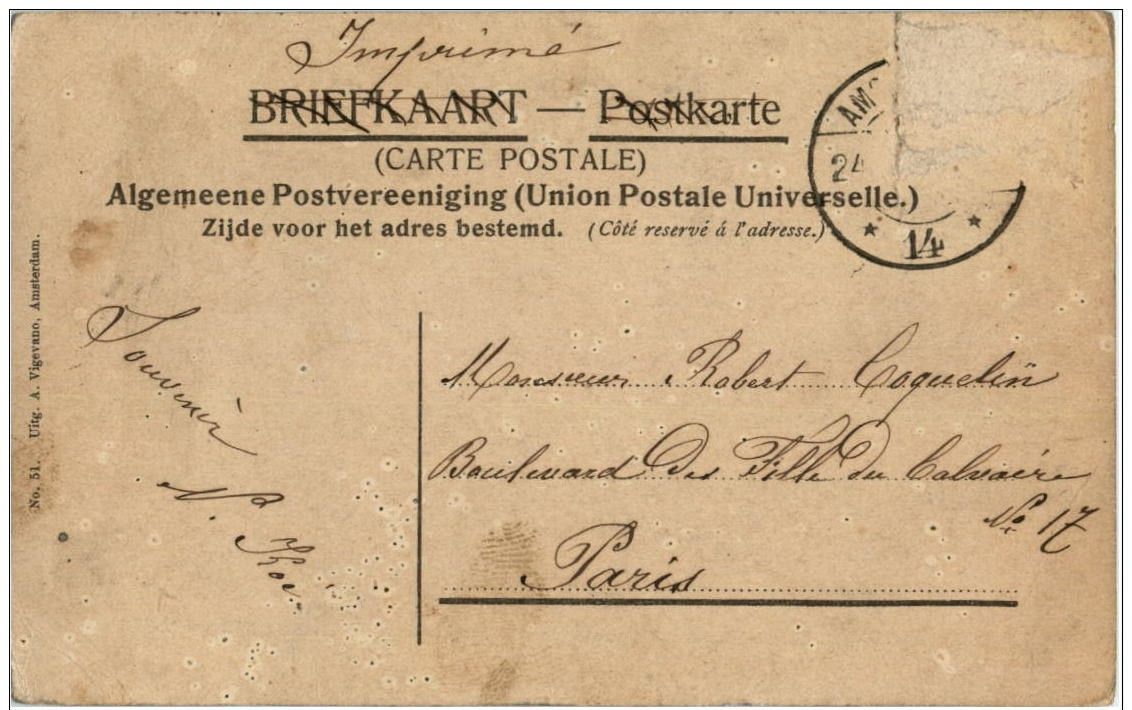 Imprimé
BRIEFKAART — Postkarte
(CARTE POSTALE)
Algemeene Postvereeniging (Union Postale Universelle.)
Zijde voor het adres bestemd. (Côté reservé á l'adresse.)
AMS
24
* 14 *
No. 51. Uitg. A. Vigevano, Amsterdam.
Souvenir
N.
Monsieur Robert Coquelin
Boulevard des Fille du Calvaire
No 17
Paris